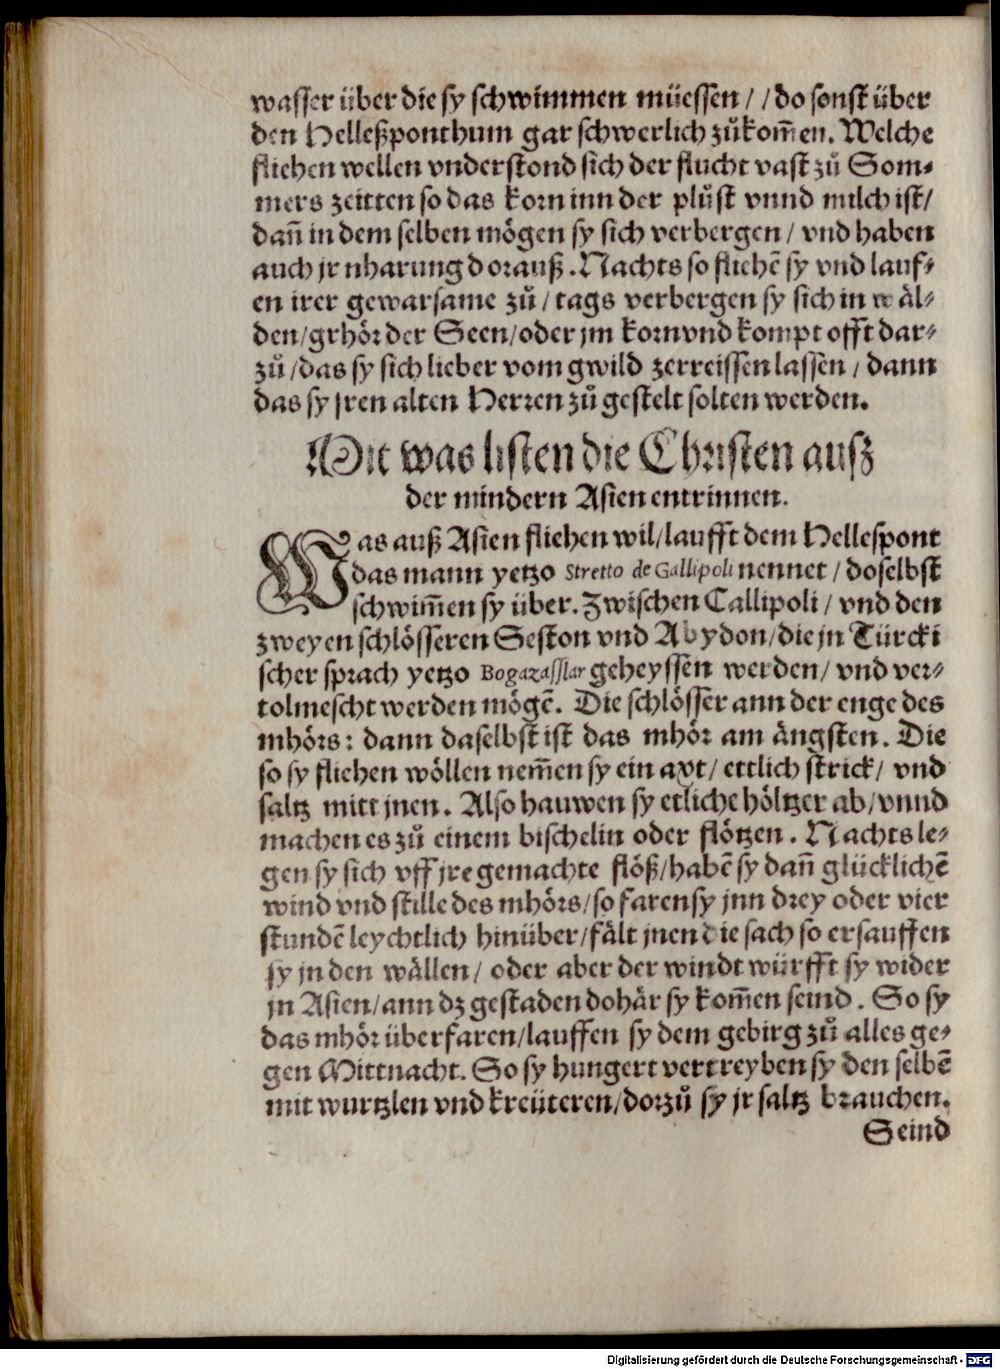 wasser über die sy schwimmen müessen / / do sonst über
den Helleßponthum gar schwerlich zůkom̃en. Welche
fliehen wellen vnderstond sich der flucht vast zů Som⸗
mers zeitten so das korn inn der plůst vnnd milch ist/
dañ in dem selben mögen sy sich verbergen / vnd haben
auch jr nharung dorauß. Nachts so fliehẽ sy vnd lauf⸗
en irer gewarsame zů / tags verbergen sy sich in wäl⸗
den/grhör der Seen/oder jm korn vnd kompt offt dar⸗
zů /das sy sich lieber vom gwild zerreissen lassen / dann
das sy jren alten Herren zů gestelt solten werden.
Mit was listen die Christen ausz
der mindern Asien entrinnen.
Was auß Asien fliehen wil/laufft dem Hellespont
das mann yetzo Stretto de Gallipoli nennet / doselbst
schwim̃en sy über. Zwischen Callipoli / vnd den
zweyen schlösseren Seston vnd Abydon/die jn Türcki
scher sprach yetzo Bogazasslar geheyssen werden/ vnd ver⸗
tolmescht werden mögẽ. Die schlösser ann der enge des
mhörs: dann daselbst ist das mhör am ängsten. Die
so sy fliehen wöllen nem̃en sy ein axt/ ettlich strick/ vnd
saltz mitt jnen. Also hauwen sy etliche höltzer ab/vnnd
machen es zů einem bischelin oder flötzen. Nachts le⸗
gen sy sich vff jre gemachte flöß/habẽ sy dañ glücklichẽ
wind vnd stille des mhörs/so faren sy jnn drey oder vier
stundẽ leychtlich hinüber/fält jnen die sach so ersauffen
sy jn den wällen/ oder aber der windt würfft sy wider
jn Asien/ann dz gestaden dohär sy kom̃en seind. So sy
das mhör überfaren/lauffen sy dem gebirg zů alles ge⸗
gen Mittnacht. So sy hungert vertreyben sy den selbẽ
mit wurtzlen vnd kreüteren/dorzů sy jr saltz brauchen.
Seind
Digitalisierung gefördert durch die Deutsche Forschungsgemeinschaft - DFG